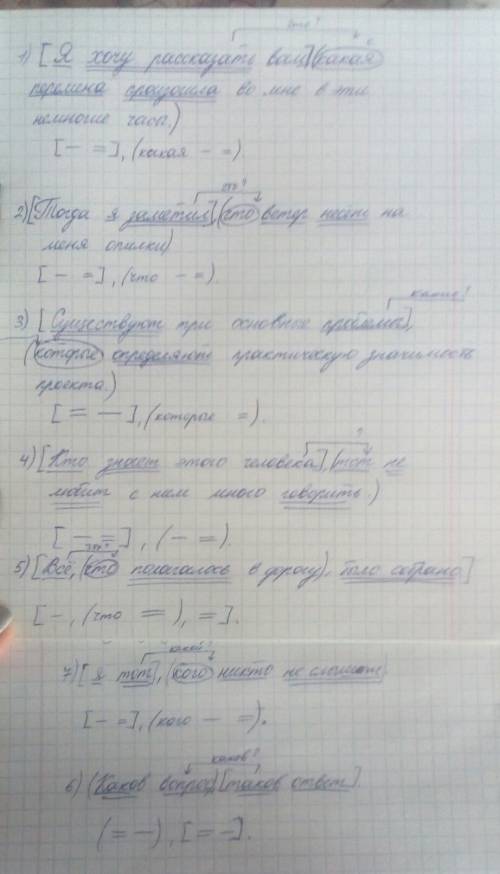 что?
1) [Я хочу рассказать вам], (какая
перемена произошла во мне в эти
немногие часы.)
[– =], (какая – =).
что?
2) [Тогда я заметил], (что ветер несёт на
меня опилки)
[– =], (что – =).
какие?
3) [Существуют три основные проблемы],
(которые определяют практическую значимость
проекта.)
[= –], (которые =).
?
4) [Кто знает этого человека], (тот не
любит с ним много говорить.)
[– =], (– =).
что?
5) [Всё, (что полагалось в дорогу), было собрано]
[–, (что =), =].
какой?
7) [я тот], (кого никто не
[– =], (кого – =).
каков?
6) (Каков вопрос), [таков ответ].
(= –), [= –].